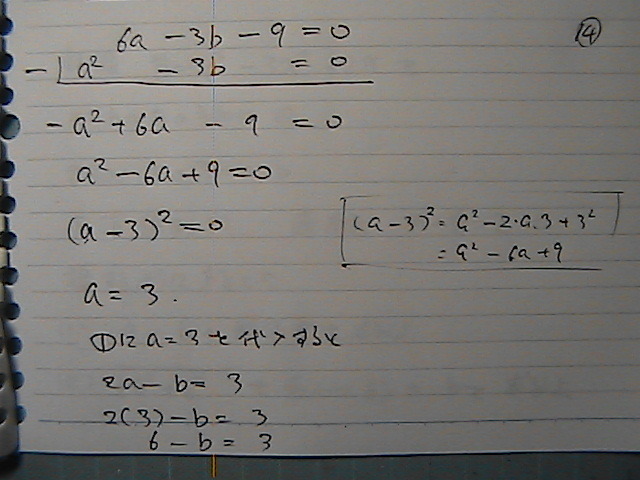 6a - 3b - 9 = 0
④
- a² - 3b = 0
-a² + 6a - 9 = 0
a² - 6a + 9 = 0
(a - 3)² = 0
(a - 3)² = a² - 2·a·3 + 3²
= a² - 6a + 9
a = 3.
①に a = 3 を代入すると
2a - b = 3
2(3) - b = 3
6 - b = 3